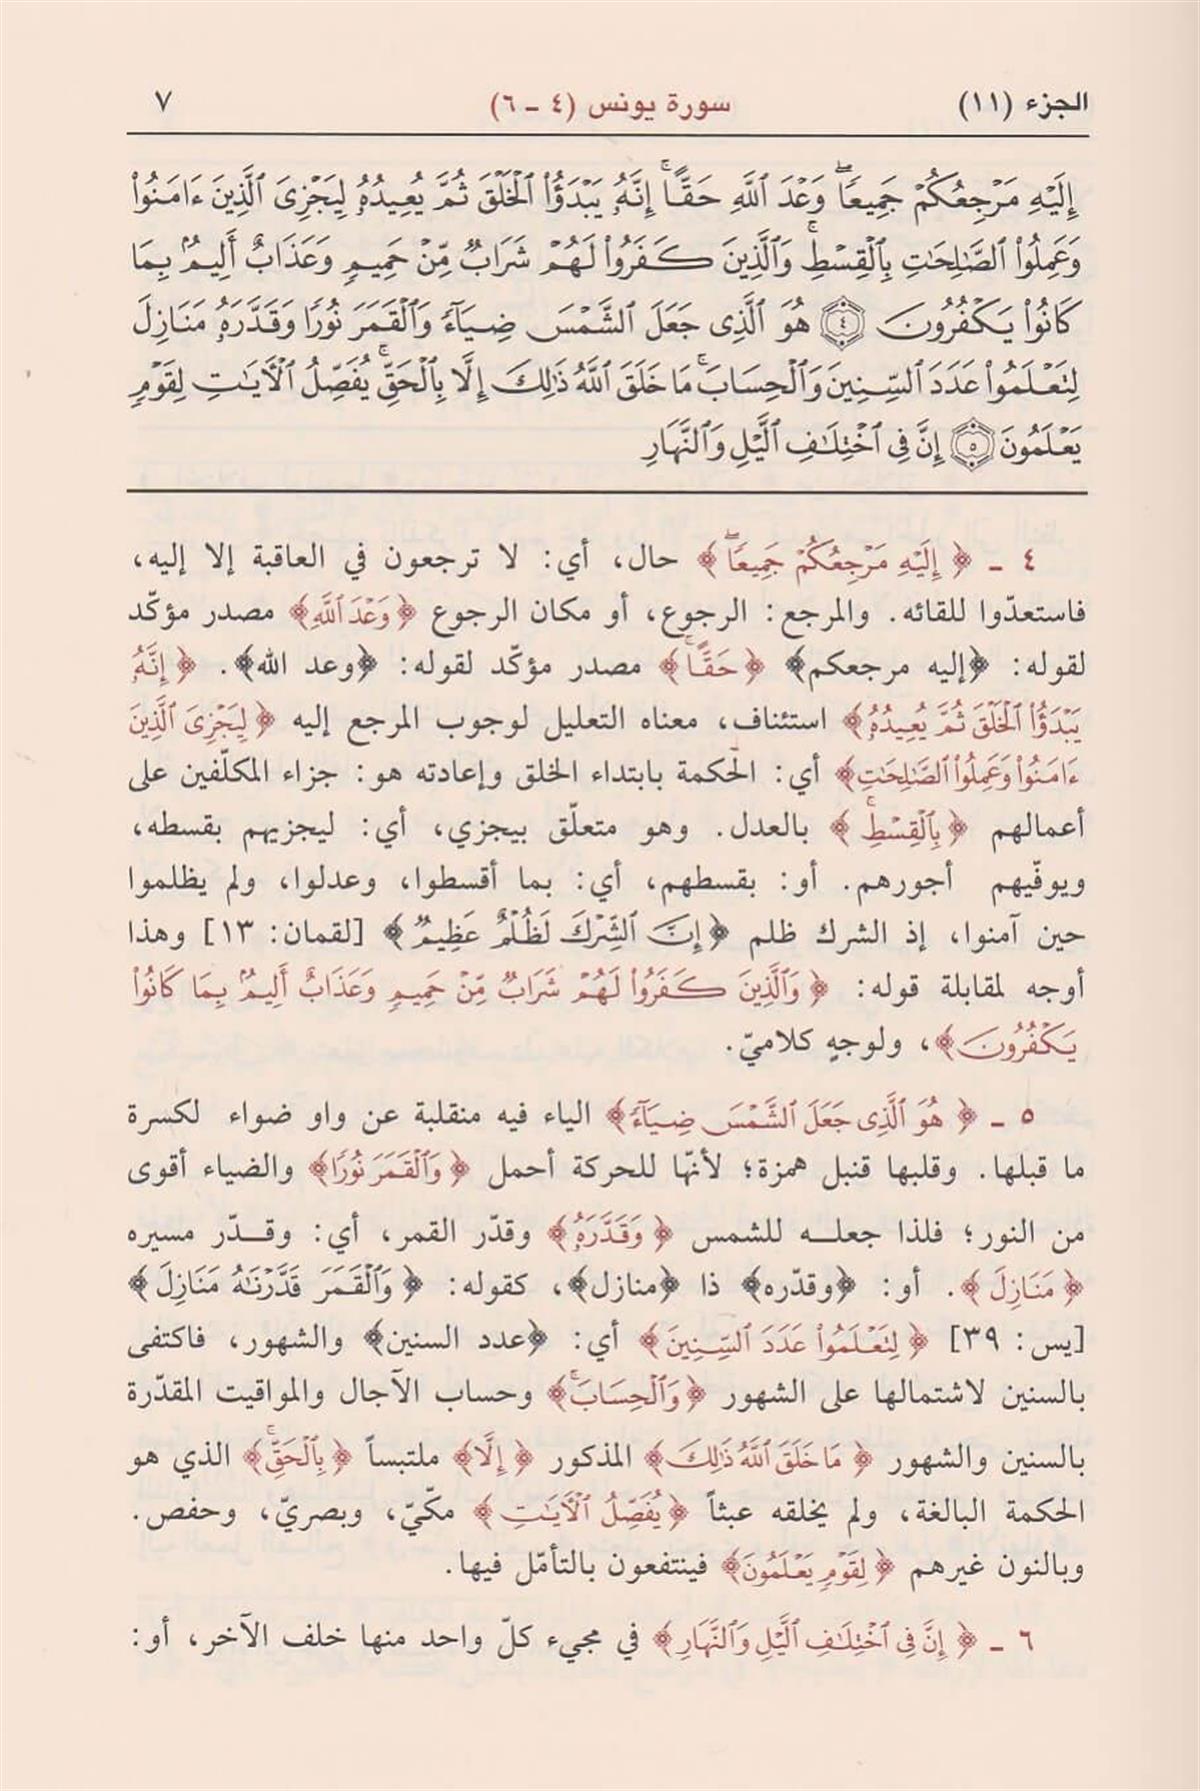 الجزء (١١)
سورة يونس (٤ - ٦)
٧
إِلَيْهِ مَرْجِعُكُمْ جَمِيعًاۖ وَعْدَ ٱللَّهِ حَقًّاۚ إِنَّهُۥ يَبْدَؤُا۟ ٱلْخَلْقَ ثُمَّ يُعِيدُهُۥ لِيَجْزِىَ ٱلَّذِينَ ءَامَنُوا۟
وَعَمِلُوا۟ ٱلصَّـٰلِحَـٰتِ بِٱلْقِسْطِۚ وَٱلَّذِينَ كَفَرُوا۟ لَهُمْ شَرَابٌ مِّنْ حَمِيمٍ وَعَذَابٌ أَلِيمٌۢ بِمَا
كَانُوا۟ يَكْفُرُونَ ﴿٤﴾ هُوَ ٱلَّذِى جَعَلَ ٱلشَّمْسَ ضِيَآءً وَٱلْقَمَرَ نُورًا وَقَدَّرَهُۥ مَنَازِلَ
لِتَعْلَمُوا۟ عَدَدَ ٱلسِّنِينَ وَٱلْحِسَابَۚ مَا خَلَقَ ٱللَّهُ ذَٰلِكَ إِلَّا بِٱلْحَقِّۚ يُفَصِّلُ ٱلْـَٔايَـٰتِ لِقَوْمٍ
يَعْلَمُونَ ﴿٥﴾ إِنَّ فِى ٱخْتِلَـٰفِ ٱلَّيْلِ وَٱلنَّهَارِ
٤ - ﴿إِلَيْهِ مَرْجِعُكُمْ جَمِيعًاۖ﴾ حال، أي: لا ترجعون في العاقبة إلا إليه،
فاستعدّوا للقائه. والمرجع: الرجوع، أو مكان الرجوع ﴿وَعْدَ ٱللَّهِ﴾ مصدر مؤكّد
لقوله: ﴿إليه مرجعكم﴾ ﴿حَقًّاۚ﴾ مصدر مؤكّد لقوله: ﴿وعد الله﴾. ﴿إِنَّهُۥ
يَبْدَؤُا۟ ٱلْخَلْقَ ثُمَّ يُعِيدُهُۥ﴾ استئناف، معناه التعليل لوجوب المرجع إليه ﴿لِيَجْزِىَ ٱلَّذِينَ
ءَامَنُوا۟ وَعَمِلُوا۟ ٱلصَّـٰلِحَـٰتِ﴾ أي: الحكمة بابتداء الخلق وإعادته هو: جزاء المكلّفين على
أعمالهم ﴿بِٱلْقِسْطِۚ﴾ بالعدل. وهو متعلّق بيجزي، أي: ليجزيهم بقسطه،
ويوفّيهم أجورهم. أو: بقسطهم، أي: بما أقسطوا، وعدلوا، ولم يظلموا
حين آمنوا، إذ الشرك ظلم ﴿إِنَّ ٱلشِّرْكَ لَظُلْمٌ عَظِيمٌ﴾ [لقمان: ١٣] وهذا
أوجه لمقابلة قوله: ﴿وَٱلَّذِينَ كَفَرُوا۟ لَهُمْ شَرَابٌ مِّنْ حَمِيمٍ وَعَذَابٌ أَلِيمٌۢ بِمَا كَانُوا۟
يَكْفُرُونَ﴾، ولوجهٍ كلاميّ.
٥ - ﴿هُوَ ٱلَّذِى جَعَلَ ٱلشَّمْسَ ضِيَآءً﴾ الياء فيه منقلبة عن واو ضواء لكسرة
ما قبلها. وقلبها قنبل همزة؛ لأنّها للحركة أحمل ﴿وَٱلْقَمَرَ نُورًا﴾ والضياء أقوى
من النور؛ فلذا جعلـه للشمس ﴿وَقَدَّرَهُۥ﴾ وقدّر القمر، أي: وقـدّر مسيره
﴿مَنَازِلَ﴾. أو: ﴿وقدّره﴾ ذا ﴿منازل﴾، كقوله: ﴿وَٱلْقَمَرَ قَدَّرْنَـٰهُ مَنَازِلَ﴾
[يس: ٣٩] ﴿لِتَعْلَمُوا۟ عَدَدَ ٱلسِّنِينَ﴾ أي: ﴿عدد السنين﴾ والشهور، فاكتفى
بالسنين لاشتمالها على الشهور ﴿وَٱلْحِسَابَۚ﴾ وحساب الآجال والمواقيت المقدّرة
بالسنين والشهور ﴿مَا خَلَقَ ٱللَّهُ ذَٰلِكَ﴾ المذكور ﴿إِلَّا﴾ ملتبساً ﴿بِٱلْحَقِّۚ﴾ الذي هو
الحكمة البالغة، ولم يخلقه عبثاً ﴿يُفَصِّلُ ٱلْـَٔايَـٰتِ﴾ مكّيّ، وبصريّ، وحفص.
وبالنون غيرهم ﴿لِقَوْمٍ يَعْلَمُونَ﴾ فينتفعون بالتأمّل فيها.
٦ - ﴿إِنَّ فِى ٱخْتِلَـٰفِ ٱلَّيْلِ وَٱلنَّهَارِ﴾ في مجيء كلّ واحد منها خلف الآخر، أو: